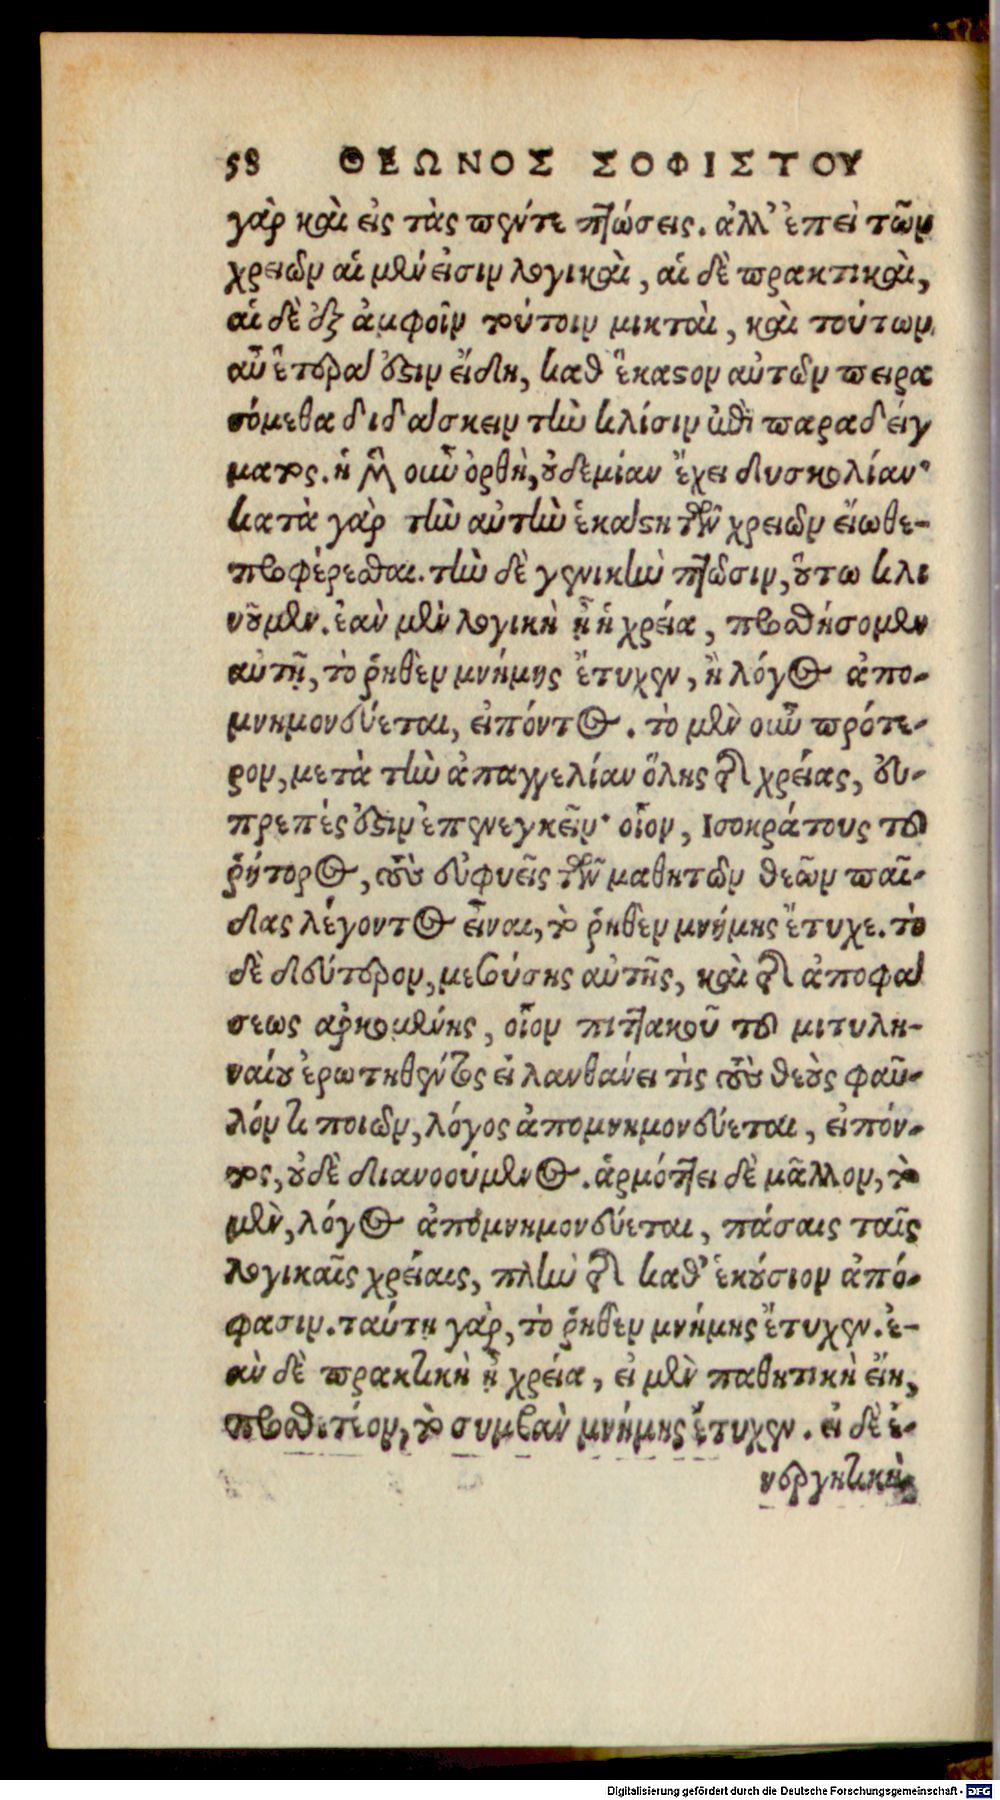 58 ΘΕΩΝΟΣ ΣΟΦΙΣΤΟΥ
γὰρ καὶ εἰς τὰς πέντε πτώσεις. ἀλλ' ἐπεὶ τῶν
χρειῶν αἱ μὲν εἰσιν λογικαὶ, αἱ δὲ πρακτικαὶ,
αἱ δὲ ἐξ ἀμφοῖν τούτοιν μικταὶ, καὶ τούτων
αὖ ἕτερα ἐστιν εἴδη, καθ' ἕκαστον αὐτῶν πειρα
σόμεθα διδάσκειν τὴν κλίσιν ἐπὶ παραδείγ
ματος. ἡ μὲν οὖν ὀρθὴ, οὐδεμίαν ἔχει δυσκολίαν·
κατὰ γὰρ τὴν αὐτὴν ἑκάστη τῶν χρειῶν εἴωθε-
προφέρεσθαι. τὴν δὲ γενικὴν πτῶσιν, οὕτω κλι
νοῦμεν. ἐὰν μὲν λογικὴ ᾖ ἡ χρεία, προσθήσομεν
αὐτῇ, τὸ ῥηθὲν μνήμης ἔτυχεν, ἢ λόγος ἀπο-
μνημονεύεται, εἰπόντος. τὸ μὲν οὖν πρότε-
ρον, μετὰ τὴν ἀπαγγελίαν ὅλης τῆς χρείας, εὐ-
πρεπές ἐστιν ἐπενεγκεῖν· οἷον, Ισοκράτους τοῦ
ῥήτορος, τοὺς εὐφυεῖς τῶν μαθητῶν θεῶν παῖ-
δας λέγοντος εἶναι, τὸ ῥηθὲν μνήμης ἔτυχε. τὸ
δὲ δεύτερον, μεσούσης αὐτῆς, καὶ τῆς ἀποφά
σεως ἀρχομένης, οἷον πιττακοῦ τοῦ μιτυλη-
ναίου ἐρωτηθέντος εἰ λανθάνει τὶς τοὺς θεοὺς φαῦ-
λόν τι ποιῶν, λόγος ἀπομνημονεύεται, εἰπόν-
τος, οὐδὲ διανοούμενος. ἁρμόττει δὲ μᾶλλον, τὸ
μὲν, λόγος ἀπομνημονεύεται, πάσαις ταῖς
λογικαῖς χρείαις, πλὴν τῆς καθ' ἑκούσιον ἀπό-
φασιν. ταύτῃ γὰρ, τὸ ῥηθὲν μνήμης ἔτυχεν. ἐ-
ὰν δὲ πρακτικὴ ᾖ χρεία, εἰ μὲν παθητικὴ εἴη,
προσθετέον, τὸ συμβὰν μνήμης ἔτυχεν. εἰ δὲ ἐ-
νεργητικὴ
Digitalisierung gefördert durch die Deutsche Forschungsgemeinschaft - DFG